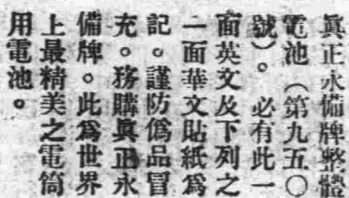 眞正永備牌整體
電池（第九五〇
號）。必有此一
面英文及下列之
一面華文貼紙爲
記。謹防僞品冒
充。務購眞正永
備牌。此爲世界
上最精美之電筒
用電池。